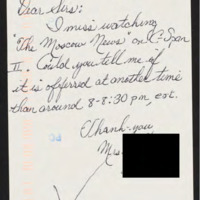 Dear Sirs:
I miss watching
"The Moscow News" on C-Span
II. Could you tell me if
it is offerred at another time
than around 8-8:30 pm, est.
Thank-you,
Mrs.